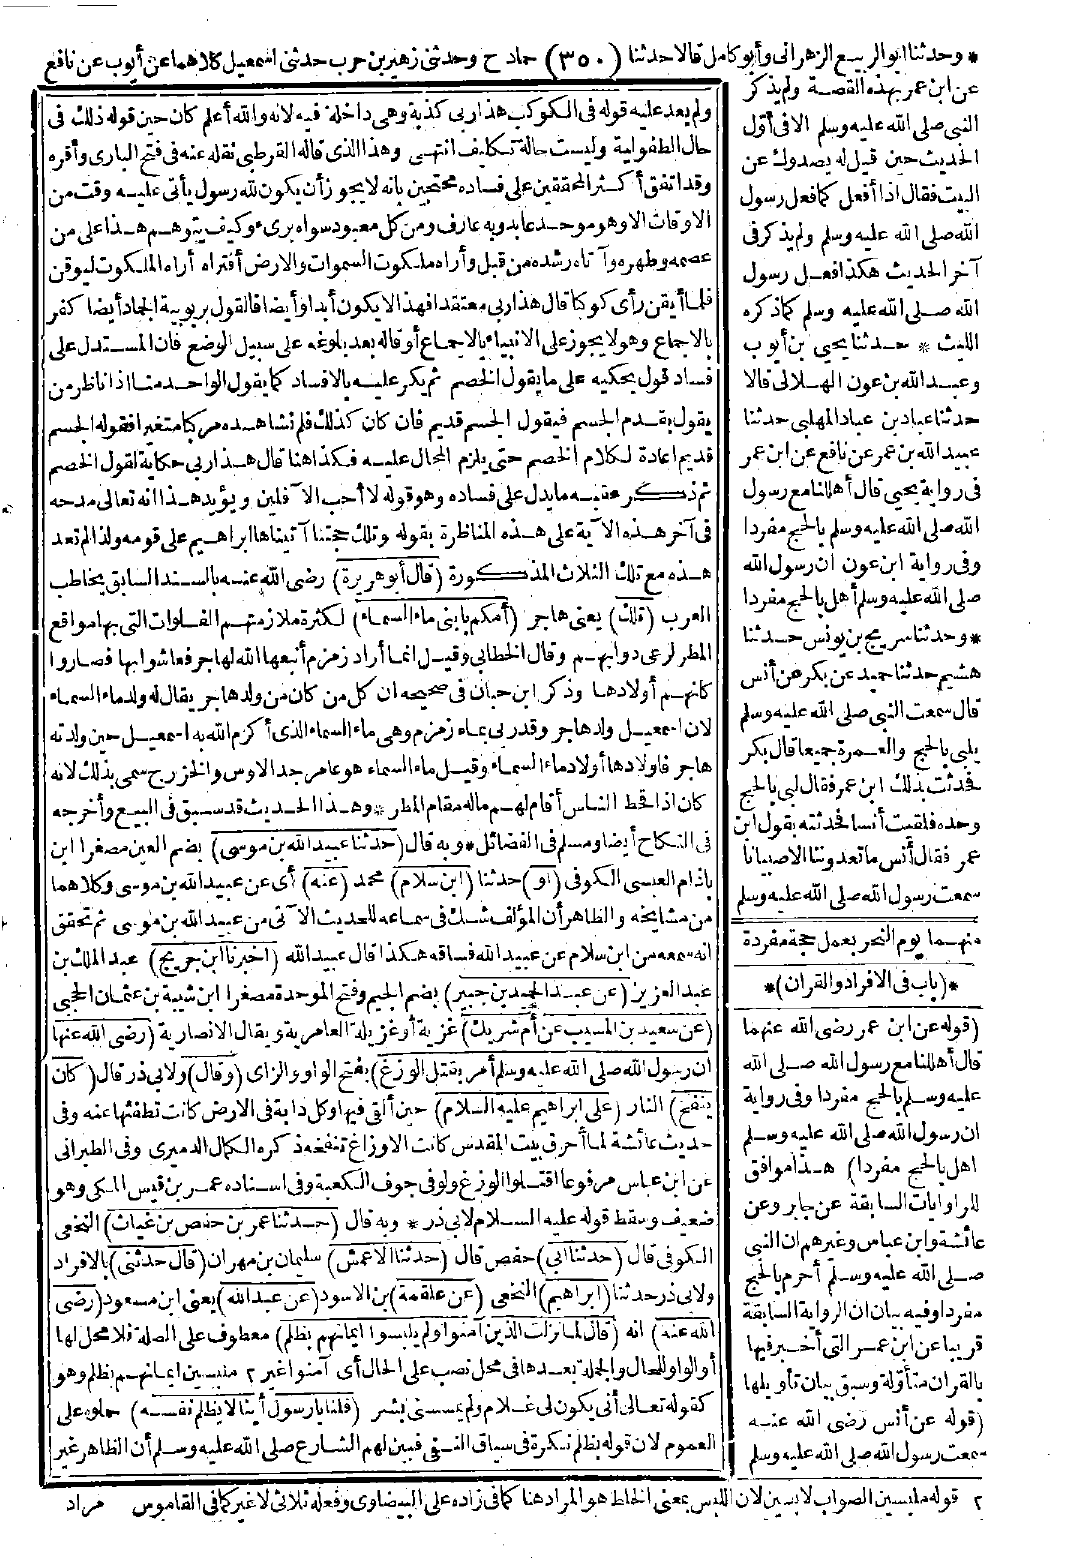 * وحدثنا ابو الربيع الزهرانى وأبو كامل قالا حدثنا (٣٥٠) حماد ح وحدثنى زهير بن حرب حدثنى اسمعيل كلاهما عن أيوب عن نافع
عن ابن عمر بهذه القصة ولم يذكر
النبى صلى الله عليه وسلم الا فى أول
الحديث حين قيل له يصدوك عن
البيت فقال اذا أفعل كما فعل رسول
الله صلى الله عليه وسلم ولم يذكر فى
آخر الحديث هكذا فعل رسول
الله صلى الله عليه وسلم كما ذكره
الليث * حدثنا يحيى بن أيوب
وعبد الله بن عون الهلالى قالا
حدثنا عباد بن عباد المهلبى حدثنا
عبيد الله بن عمر عن نافع عن ابن عمر
فى رواية يحيى قال أهللنا مع رسول
الله صلى الله عليه وسلم بالحج مفردا
وفى رواية ابن عون ان رسول الله
صلى الله عليه وسلم أهل بالحج مفردا
* وحدثنا سريج بن يونس حدثنا
هشيم حدثنا حميد عن بكر عن أنس
قال سمعت النبى صلى الله عليه وسلم
يلبى بالحج والعمرة جميعا قال بكر
فحدثت بذلك ابن عمر فقال لبى بالحج
وحده فلقيت أنسا فحدثته بقول ابن
عمر فقال أنس ما تعدوننا الا صبيانا
سمعت رسول الله صلى الله عليه وسلم
منهما يوم النحر بعمل حجة مفردة
* (باب فى الافراد والقران) *
(قوله عن ابن عمر رضى الله عنهما
قال أهللنا مع رسول الله صلى الله
عليه وسلم بالحج مفردا وفى رواية
ان رسول الله صلى الله عليه وسلم
اهل بالحج مفردا) هذا موافق
للراوايات السابقة عن جابر وعن
عائشة وابن عباس وغيرهم ان النبى
صلى الله عليه وسلم أحرم بالحج
مفردا وفيه بيان ان الرواية السابقة
قريبا عن ابن عمر التى أخبر فيها
بالقران متأولة وسبق بيان تأويلها
(قوله عن أنس رضى الله عنه
سمعت رسول الله صلى الله عليه وسلم
ولم يعد عليه قوله فى الكوكب هذا ربى كذبة وهى داخلة فيه لانه والله أعلم كان حين قوله ذلك فى
حال الطفولية وليست حالة تكليف انتهى وهذا الذى قاله القرطبى نقله عنه فى فتح البارى وأقره
وقد اتفق أكثر المحققين على فساده محتجين بانه لا يجوز أن يكون لله رسول يأتى عليه وقت من
الاوقات الا وهو موحد عابد وبه عارف ومن كل معبود سواه برىء وكيف يتوهم هذا على من
عصمه وطهره وآتاه رشده من قبل وأراه ملكوت السموات والارض أفتراه أراه الملكوت ليوقن
فلما أيقن رأى كوكبا قال هذا ربى معتقدا فهذا لا يكون أبدا وأيضا فالقول بربوبية الجماد أيضا كفر
بالاجماع وهو لا يجوز على الانبياء بالاجماع أو قاله بعد بلوغه على سبيل الوضع فان المستدل على
فساد قول يحكيه على ما يقول الخصم ثم يكر عليه بالافساد كما يقول الواحد منا اذا ناظر من
يقول بقدم الجسم فيقول الجسم قديم فان كان كذلك فلم نشاهده مركبا متغيرا فقوله الجسم
قديم اعادة لكلام الخصم حتى يلزم المحال عليه فكذا هنا قال هذا ربى حكاية لقول الخصم
ثم ذكر عقيبه ما يدل على فساده وهو قوله لا أحب الآفلين ويؤيد هذا انه تعالى مدحه
فى آخر هذه الآية على هذه المناظرة بقوله وتلك حجتنا آتيناها ابراهيم على قومه ولذا لم تعد
هذه مع تلك الثلاث المذكورة (قال أبو هريرة) رضى الله عنه بالسند السابق يخاطب
العرب (تلك) يعنى هاجر (أمكم يا بنى ماء السماء) لكثرة ملازمتهم الفلوات التى بها مواقع
المطر لرعى دوابهم وقال الخطابى وقيل انما أراد زمزم أنبعها الله لهاجر فعاشوا بها فصاروا
كانهم أولادها وذكر ابن حبان فى صحيحه ان كل من كان من ولد هاجر يقال له ولد ماء السماء
لان اسمعيل ولد هاجر وقد ربى بماء زمزم وهى ماء السماء الذى أكرم الله به اسمعيل حين ولدته
هاجر فاولادها أولاد ماء السماء وقيل ماء السماء هو عامر جد الاوس والخزرج سمى بذلك لانه
كان اذا قحط الناس أقام لهم ماله مقام المطر * وهذا الحديث قد سبق فى البيع وأخرجه
فى النكاح أيضا ومسلم فى الفضائل * وبه قال (حدثنا عبيد الله بن موسى) بضم العين مصغرا ابن
باذام العبسى الكوفى (أو) حدثنا (ابن سلام) محمد (عنه) أى عن عبيد الله بن موسى وكلاهما
من مشايخه والظاهر أن المؤلف شك فى سماعه للحديث الآتى من عبيد الله بن موسى ثم تحقق
انه سمعه من ابن سلام عن عبيد الله فساقه هكذا قال عبيد الله (اخبرنا ابن جريج) عبد الملك بن
عبد العزيز (عن عبد الحميد بن جبير) بضم الجيم وفتح الموحدة مصغرا ابن شيبة بن عثمان الحجبى
(عن سعيد بن المسيب عن أم شريك) غزية أو غزيلة العامرية ويقال الانصارية (رضى الله عنها
ان رسول الله صلى الله عليه وسلم أمر بقتل الوزغ) بفتح الواو والزاى (وقال) ولابى ذر قال (كان
ينفخ) النار (على ابراهيم عليه السلام) حين ألقى فيها وكل دابة فى الارض كانت تطفئها عنه وفى
حديث عائشة لما أحرق بيت المقدس كانت الاوزاغ تنفخه ذكره الكمال الدميرى وفى الطبرانى
عن ابن عباس مرفوعا اقتلوا الوزغ ولو فى جوف الكعبة وفى اسناده عمر بن قيس المكى وهو
ضعيف وسقط قوله عليه السلام لابى ذر * وبه قال (حدثنا عمر بن حفص بن غياث) النخعى
الكوفى قال (حدثنا أبى) حفص قال (حدثنا الاعمش) سليمان بن مهران (قال حدثنى) بالافراد
ولابى ذر حدثنا (ابراهيم) النخعى (عن علقمة) بن الاسود (عن عبد الله) يعنى ابن مسعود (رضى
الله عنه) انه (قال لما نزلت الذين آمنوا ولم يلبسوا ايمانهم بظلم) معطوف على الصلة فلا محل لها
أو الواو للحال والجملة بعدها فى محل نصب على الحال أى آمنوا غير ٢ ملبسين ايمانهم بظلم وهو
كقوله تعالى أنى يكون لى غلام ولم يمسسنى بشر (قلنا يا رسول أينا لا يظلم نفسه) حملوه على
العموم لان قوله بظلم نكرة فى سياق النفى فبين لهم الشارع صلى الله عليه وسلم أن الظاهر غير
٢ قوله ملبسين الصواب لابسين لان اللبس بمعنى الخلط هو المراد هنا كما فى زاده على البيضاوى وفعله ثلاثى لا غير كما فى القاموس مراد